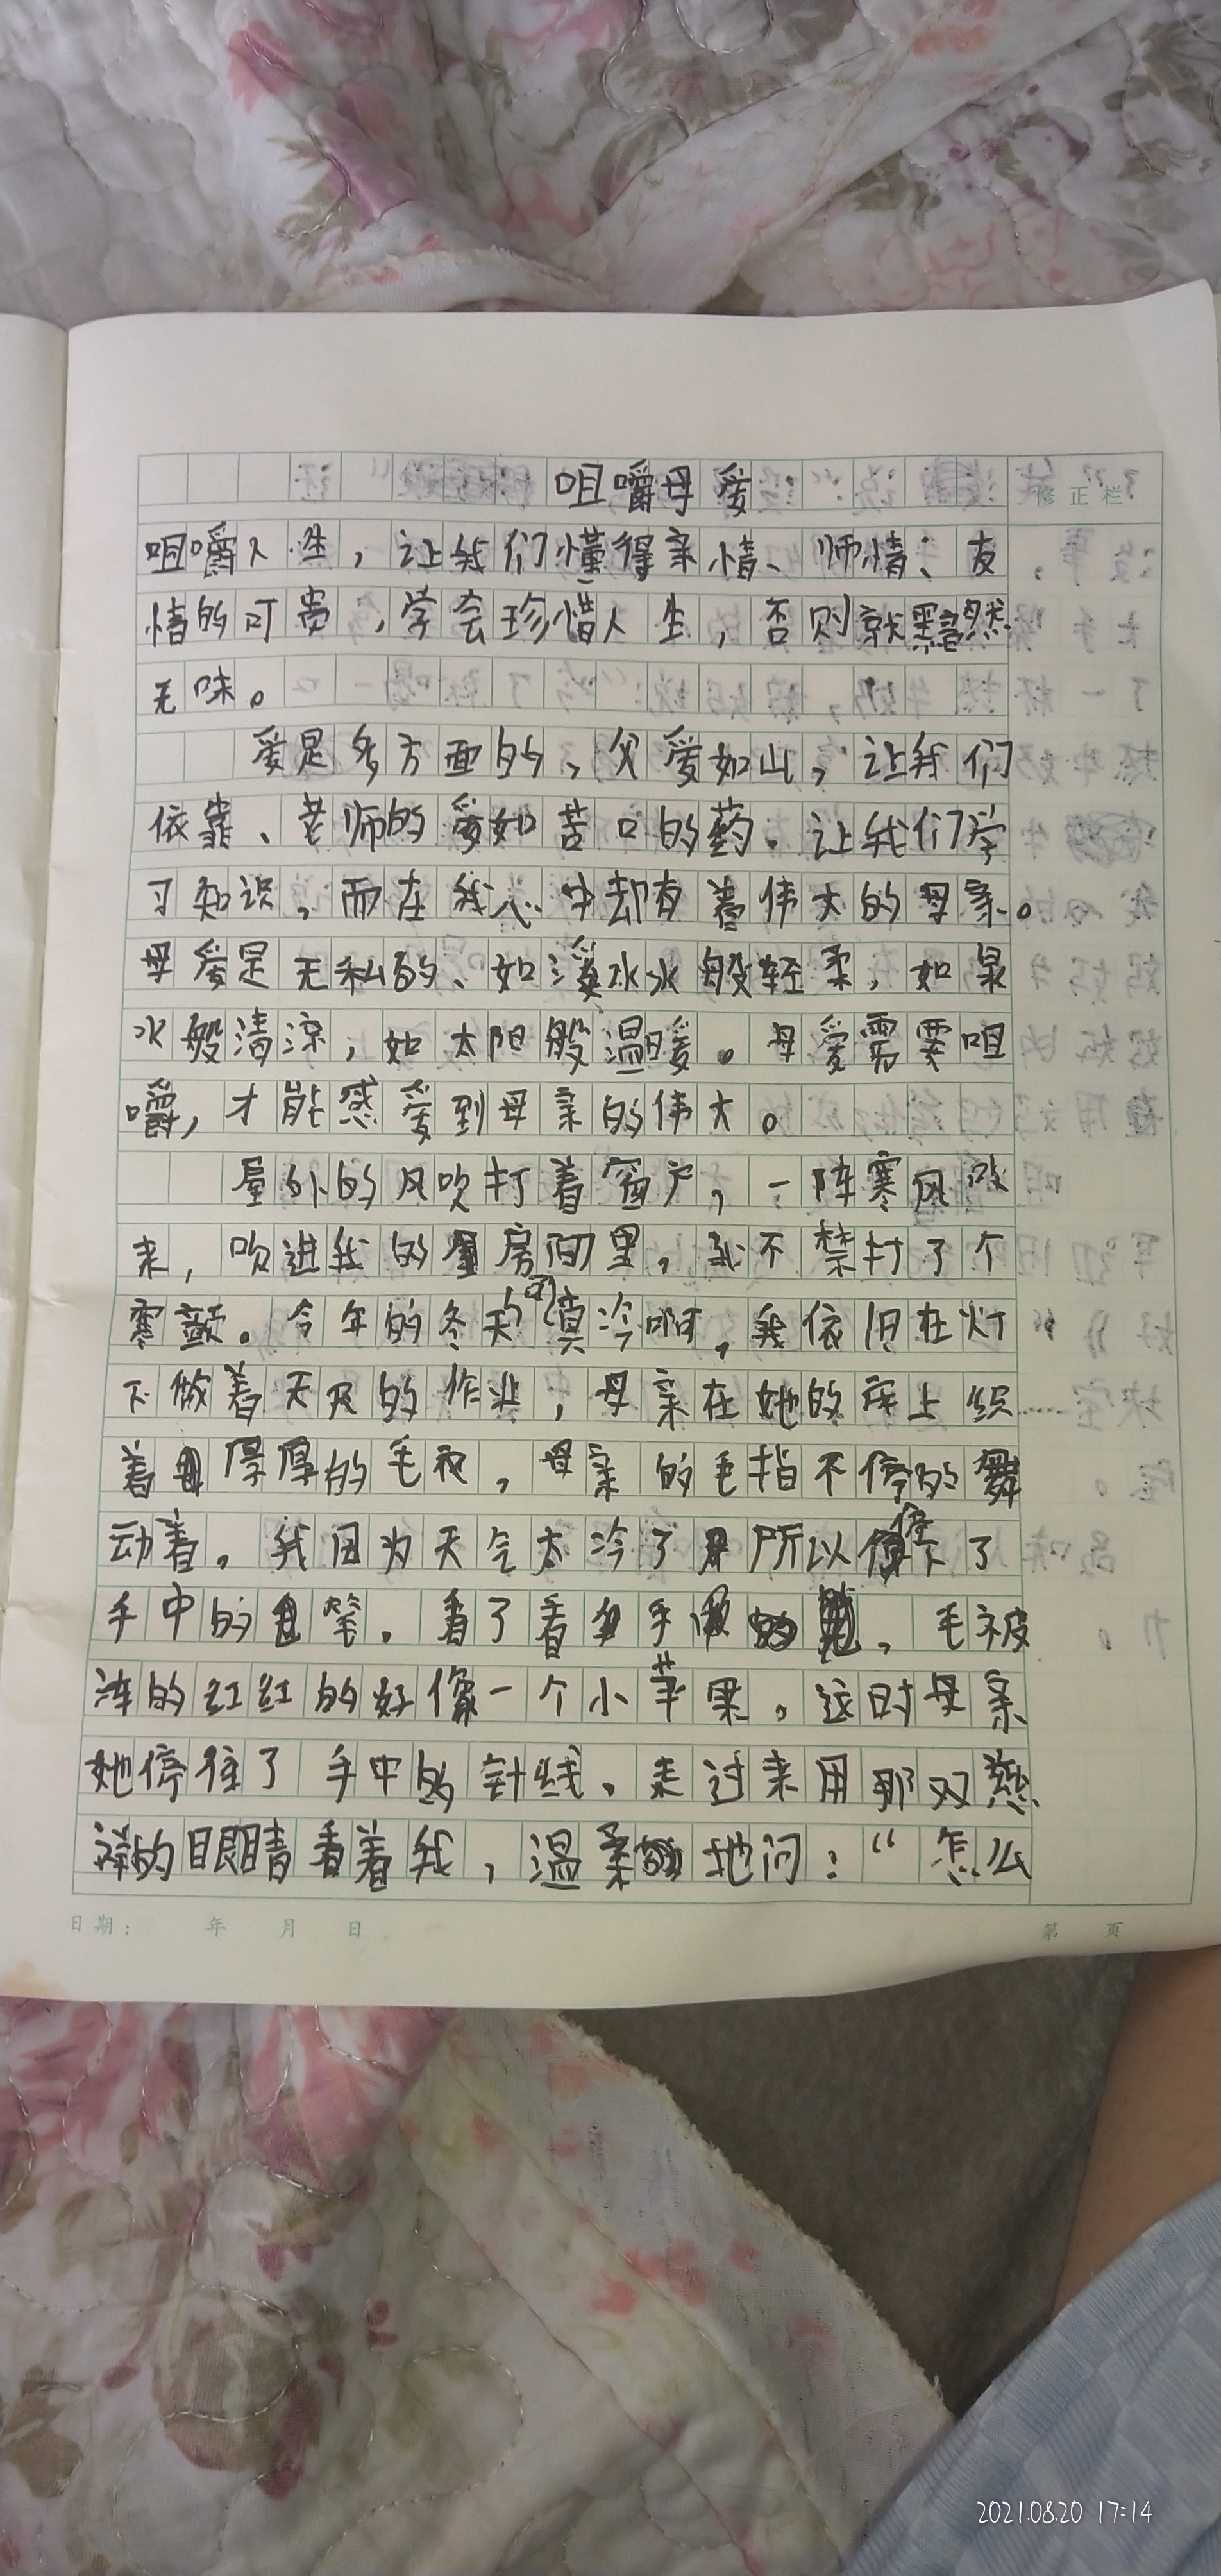 咀嚼母爱
修正栏
咀嚼人生，让我们懂得亲情、师情、友
情的可贵，学会珍惜人生，否则就黯然
无味。
爱是多方面的，父爱如山，让我们
依靠、老师的爱如苦口的药。让我们学
习知识，而在我心中却有着伟大的母亲。
母爱是无私的、如溪水水般轻柔，如泉
水般清凉，如太阳般温暖。母爱需要咀
嚼，才能感爱到母亲的伟大。
屋外的风吹打着窗户，一阵寒风吹
来，吹进我的房间里，我不禁打了个
寒颤。今年的冬天的真冷啊，我依旧在灯
下做着天天的作业，母亲在她的床上织
着厚厚的毛衣，母亲的毛指不停的舞
动着。我因为天气太冷了所以停下了
手中的笔。看了看手，毛被
冻的红红的好像一个小苹果。这时母亲
她停住了手中的针线。走过来用那双慈
祥的眼睛看着我，温柔地问：“怎么
日期： 年 月 日
第 页
2021.08.20 17:14